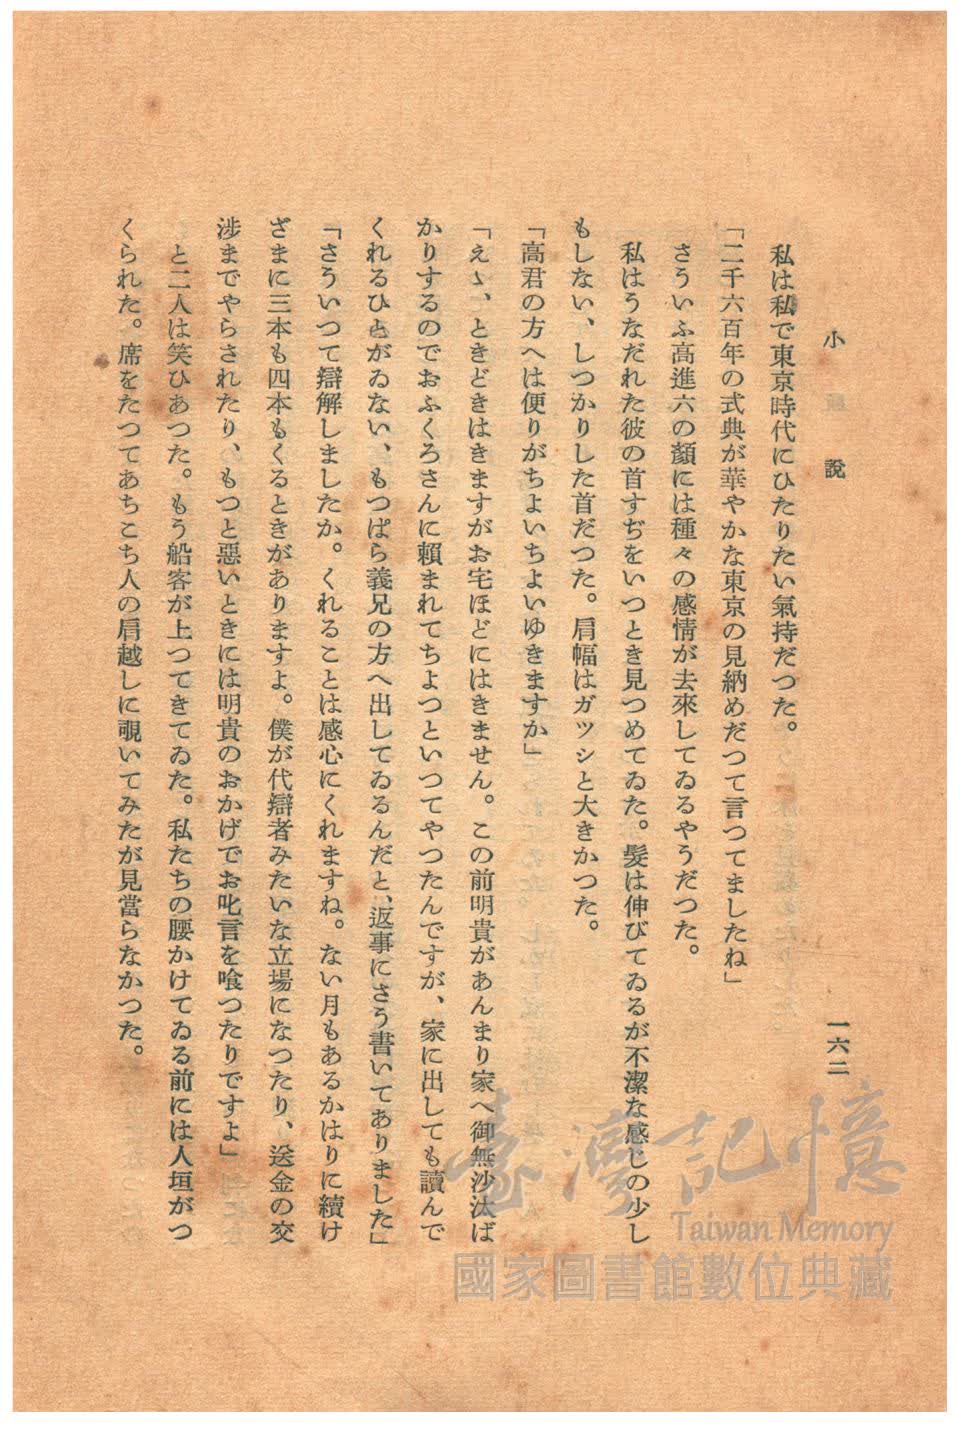 小說
一六二
私は私で東京時代にひたりたい氣持だつた。
「二千六百年の式典が華やかな東京の見納めだつて言つてましたね」
さういふ高進六の顏には種々の感情が去來してゐるやうだつた。
私はうなだれた彼の首すぢをいつとき見つめてゐた。髮は伸びてゐるが不潔な感じの少し
もしない、しつかりした首だつた。肩幅はガツシと大きかつた。
「高君の方へは便りがちよいちよいゆきますか」
「えゝ、ときどきはきますがお宅ほどにはきません。この前明貴があんまり家へ御無沙汰ば
かりするのでおふくろさんに賴まれてちよつといつてやつたんですが、家に出しても讀んで
くれるひとがゐない、もつぱら義兄の方へ出してゐるんだと、返事にさう書いてありました」
「さういつて辯解しましたか。くれることは感心にくれますね。ない月もあるかはりに續け
ざまに三本も四本もくるときがありますよ。僕が代辯者みたいな立場になつたり、送金の交
涉までやらされたり、もつと惡いときには明貴のおかげでお叱言を喰つたりですよ」
と二人は笑ひあつた。もう船客が上つてきてゐた。私たちの腰かけてゐる前には人垣がつ
くられた。席をたつてあちこち人の肩越しに覗いてみたが見當らなかつた。
臺灣記憶
Taiwan Memory
國家圖書館數位典藏